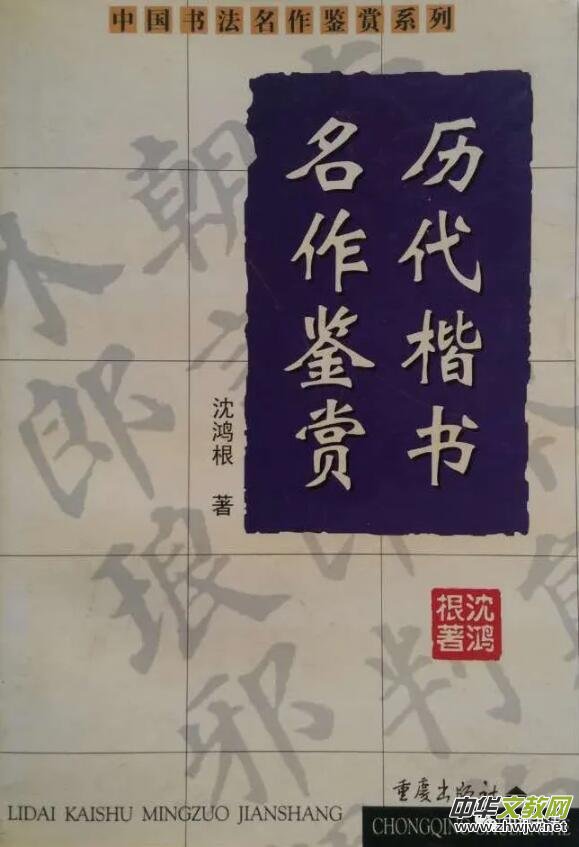 中国书法名作鉴赏系列
历代楷书
名作鉴赏
沈鸿根 著
沈鸿
根著
朝
郎
琅
邪
判
重庆出版社
LIDAI KAISHU MINGZUO JIANSHANG
CHONGQING
中华文教网
www.zhwjw.net